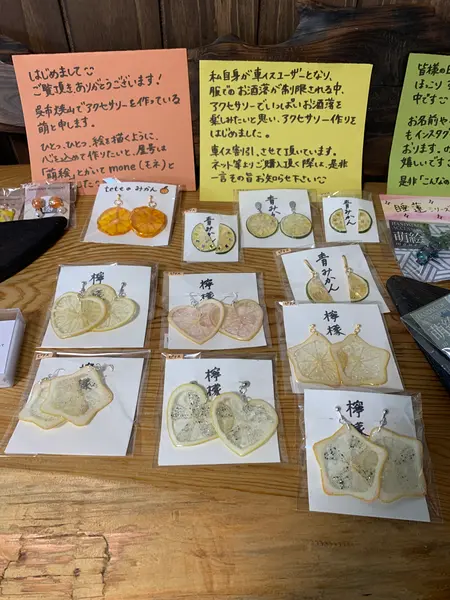 はじめまして
ご覧頂きありがとうございます!
呉市焼山でアクセサリーを作っている
萌と申します。
ひとつ、ひとつ、絵を描くように、
心を込めて作りたいと、屋号は
「萌絵」とかいて mone(モネ)と
私自身が車イスユーザーとなり、
服でのお洒落が制限される中、
アクセサリーでいっぱいお洒落を
楽しみたいと思い、アクセサリー作りを
はじめました。
車イス割引、させて頂いています。
ネット等よりご購入頂く際は、是非
一言その旨お知らせ下さい
皆様の
ほっこり
中です
お名前や
もインスタグ
おります。
嬉しいです
是非「こんな
teteのみかん
青みかん
青みかん
青みかん
青みかん
檸檬
檸檬
檸檬
檸檬
檸檬
檸檬
萌絵